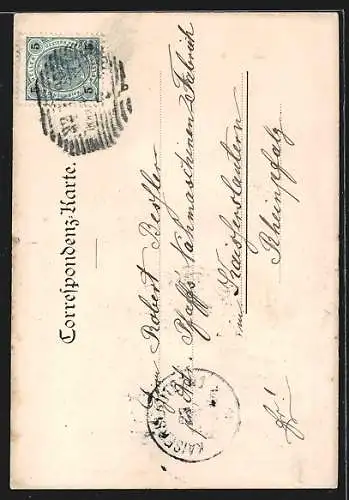 Correspondenz-Karte.
Herrn Robert Bessler
per Adr. Pfaff's Nähmaschinen-Fabrik
in Kaiserslautern
Rheinpfalz
5 5
5 5
KAISERSL